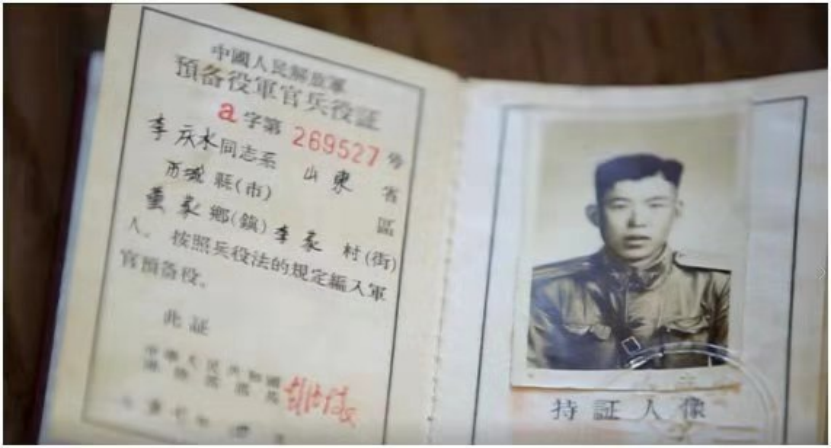 中國人民解放軍
預备役軍官兵役証
a字第 269527 号
李庆水同志系 山東 省
縣(市) 區
董家鄉(鎮)李家 村(街)
人。按照兵役法的規定編入軍
官預备役。
此証
中華人民共和國
持証人像